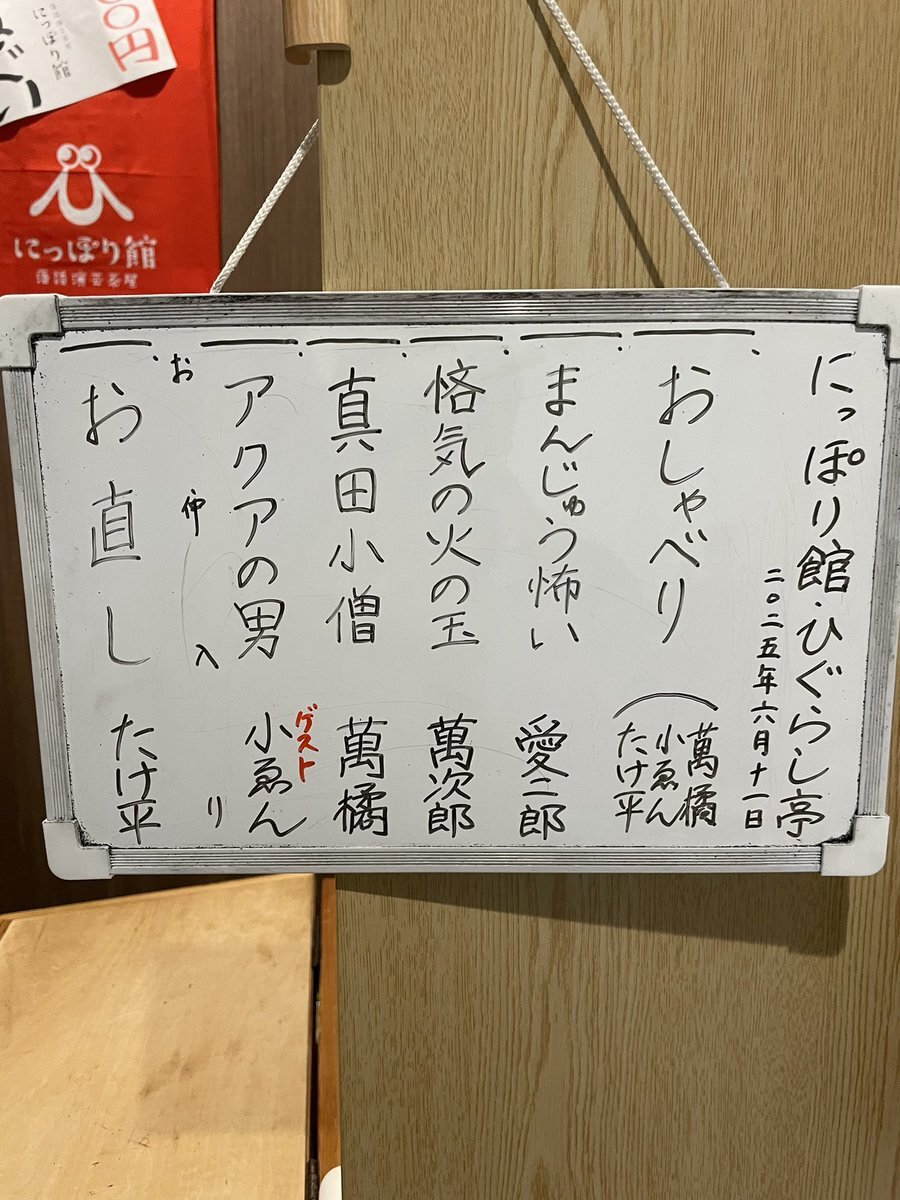 にっぽり館・ひぐらし亭
二〇二五年六月十一日
一、おしゃべり
萬橘
小ゑん
たけ平
一、まんじゅう怖い 愛二郎
一、悋気の火の玉 萬次郎
一、真田小僧 萬橘
一、アクアの男 ゲスト 小ゑん
お仲入り
一、お直し たけ平
0円
にっぽり館
にっぽり館
落語演芸茶屋